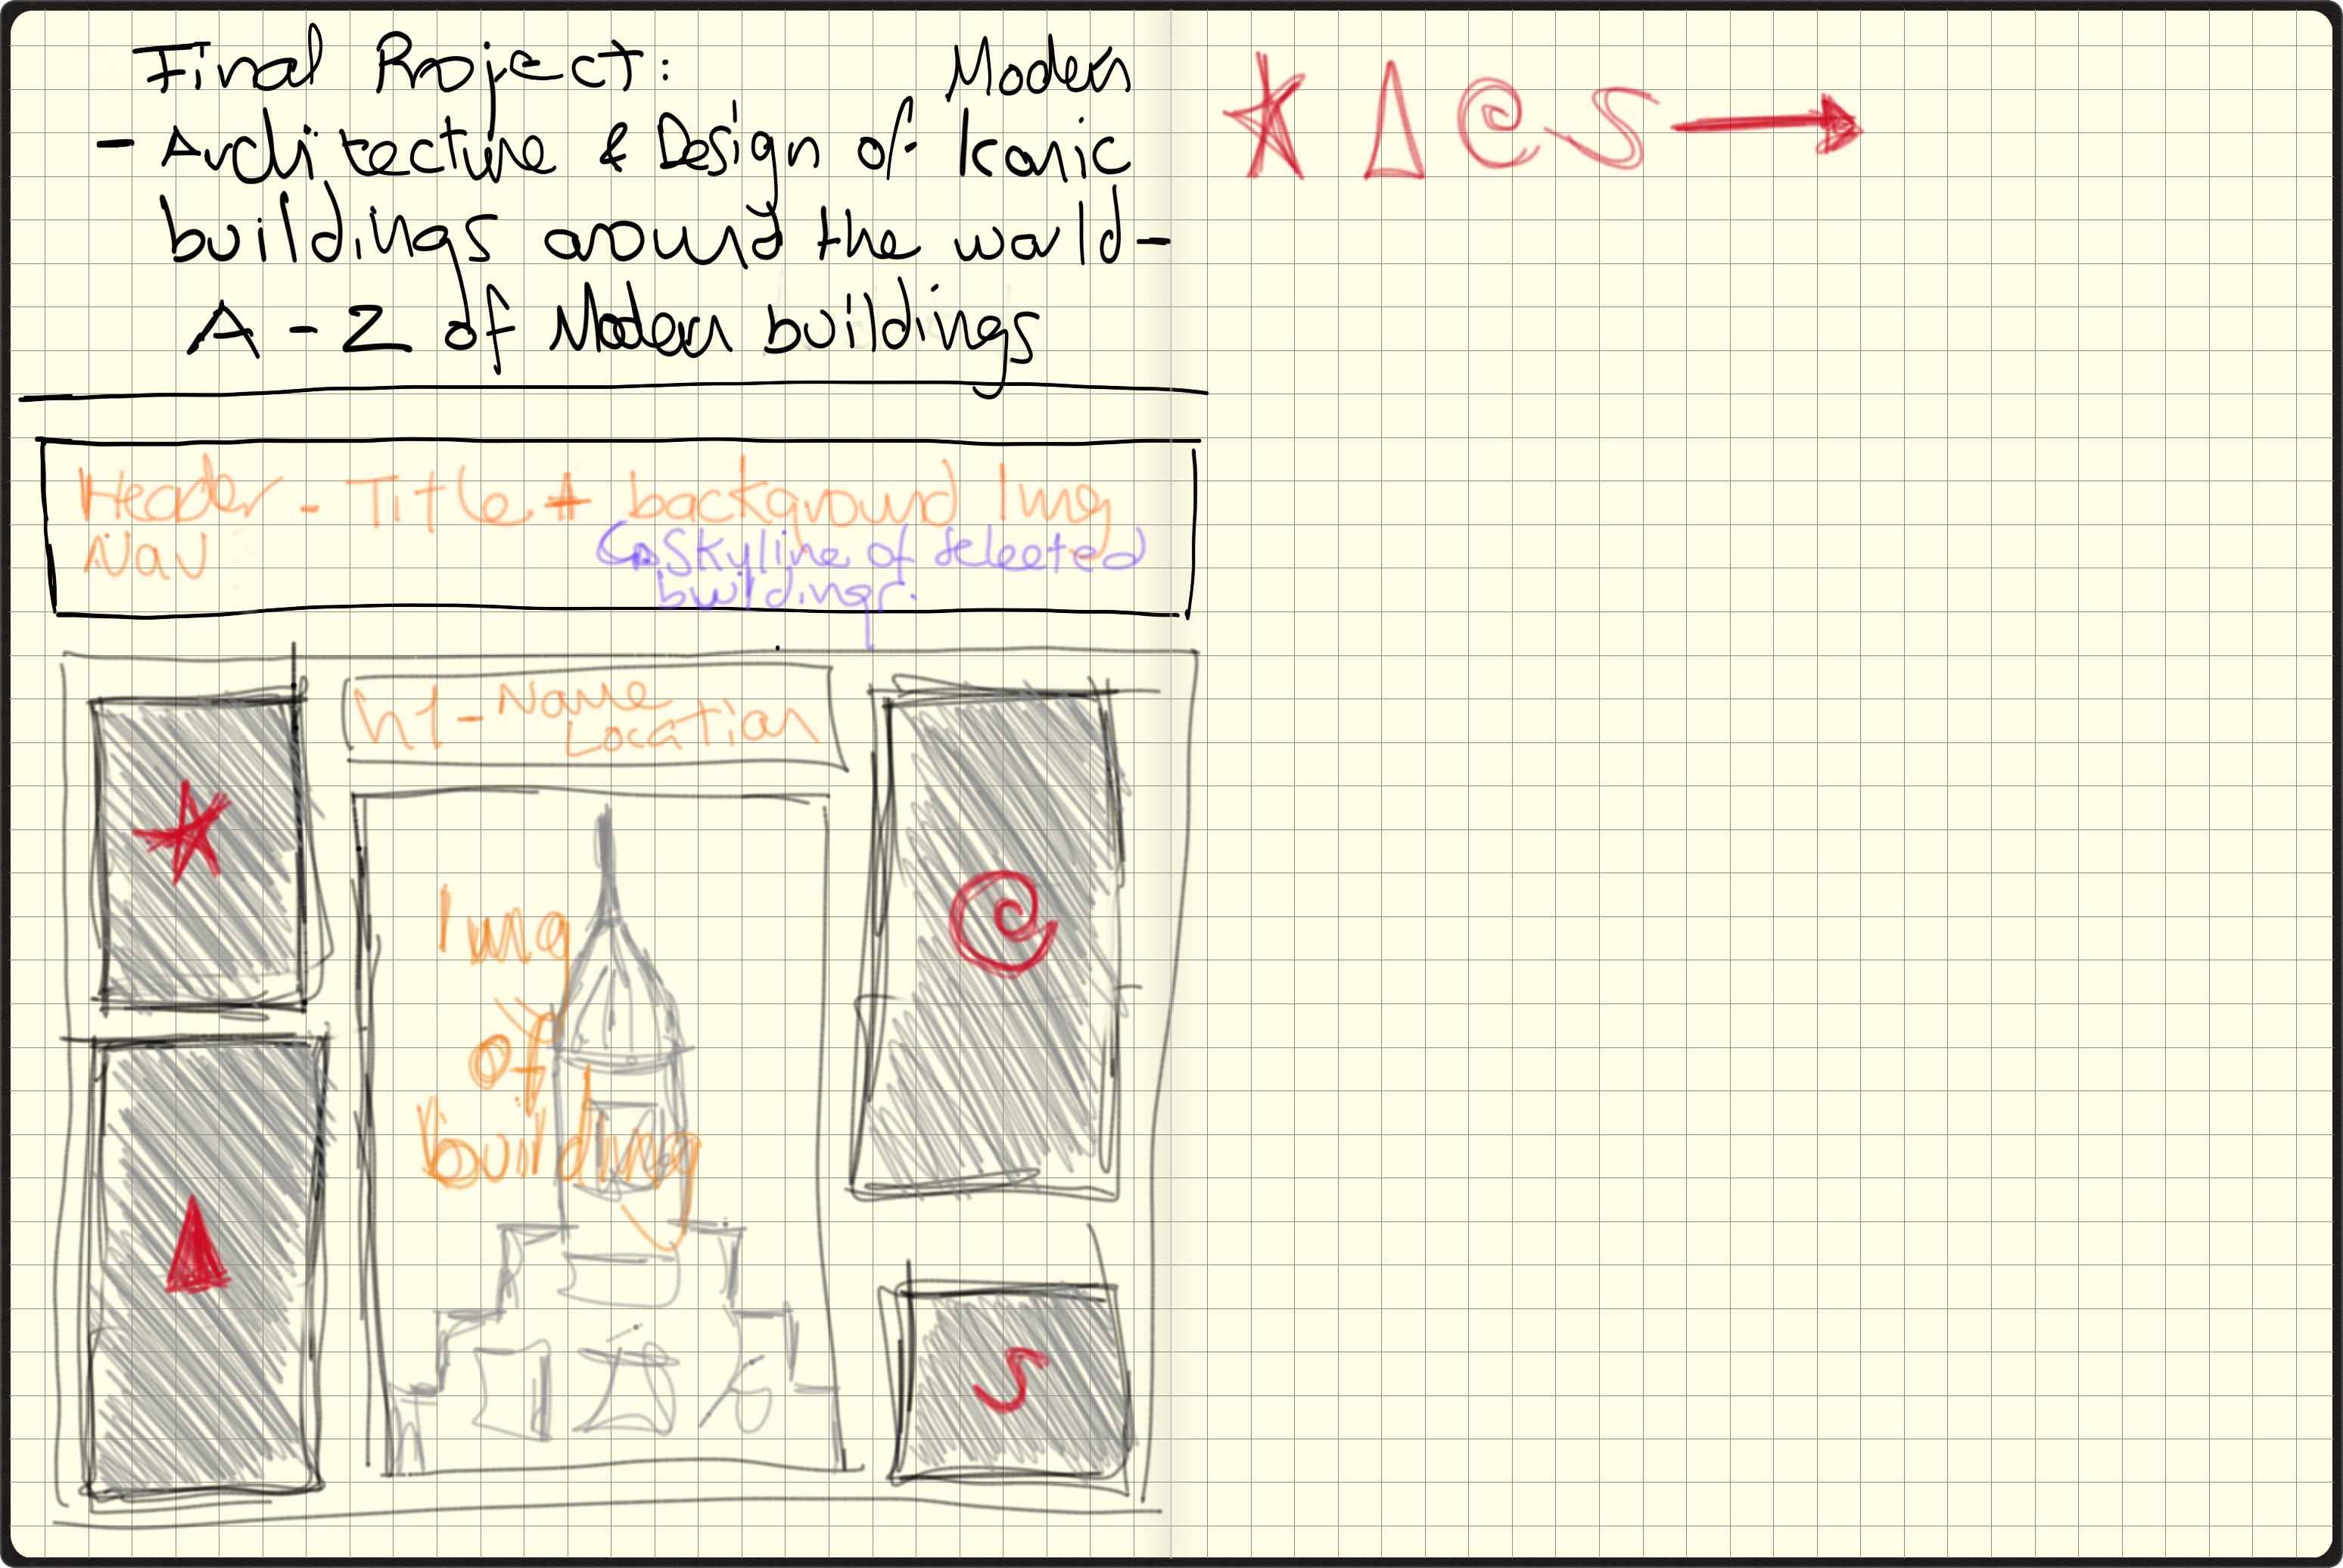 Final Project: Modern
- Architecture & Design of Iconic
buildings around the world -
A - Z of Modern buildings
Header - Title + background Img
Nav
Skyline of selected
buildings.
h1 - Name
Location
Img
of
building